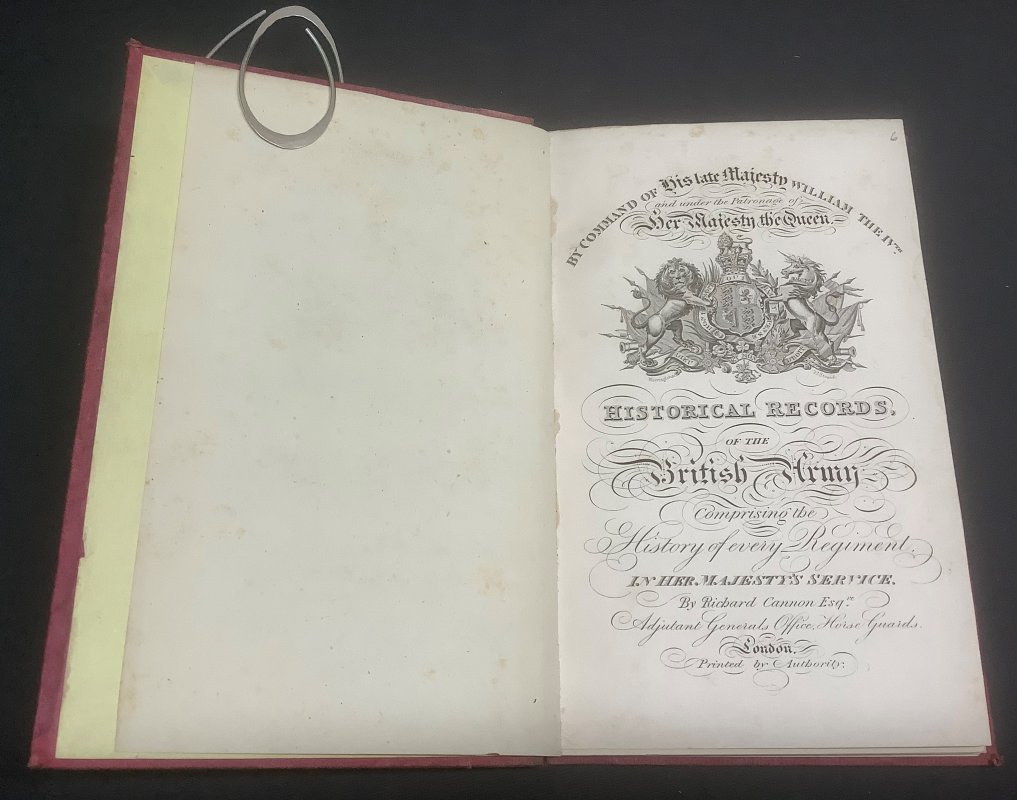 6
BY COMMAND OF His late Majesty WILLIAM THE IVth
and under the Patronage of
Her Majesty the Queen.
HISTORICAL RECORDS,
OF THE
British Army
Comprising the
History of every Regiment
IN HER MAJESTY'S SERVICE.
By Richard Cannon Esqre.
Adjutant Generals Office, Horse Guards.
London.
Printed by Authority.